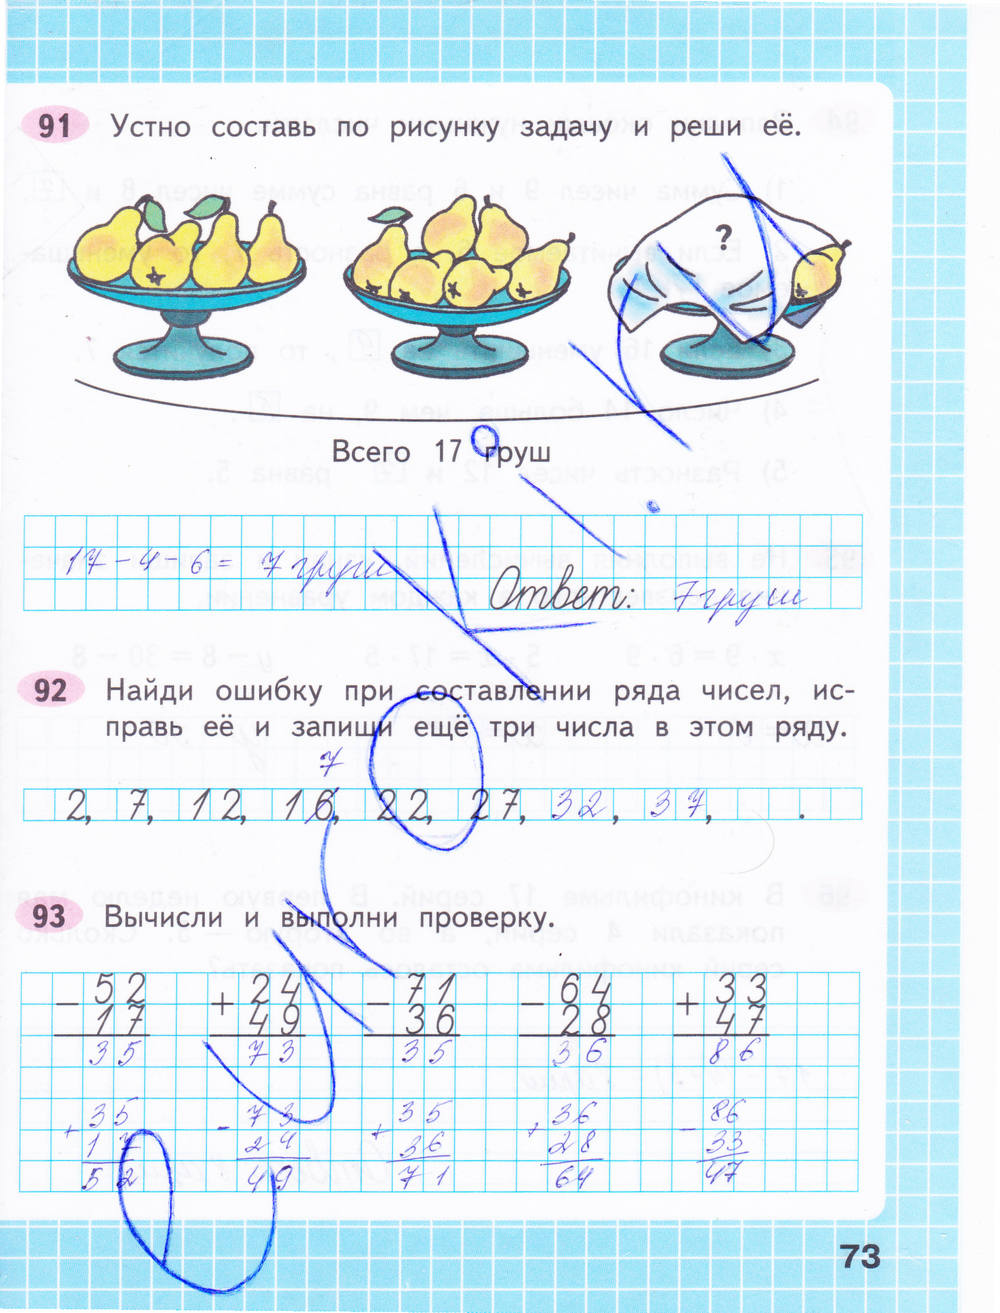 91 Устно составь по рисунку задачу и реши её.
?
Всего 17 груш
17 - 4 - 6 = 7 груш
Ответ: 7 груш
92 Найди ошибку при составлении ряда чисел, ис-
правь её и запиши ещё три числа в этом ряду.
7
2, 7, 12, 16, 22, 27, 32, 37, .
93 Вычисли и выполни проверку.
− 52 + 24 − 71 − 64 + 33
17 49 36 28 47
35 73 35 36 86
+ 35 - 73 + 35 + 36 - 86
17 24 36 28 33
52 49 71 64 47
73